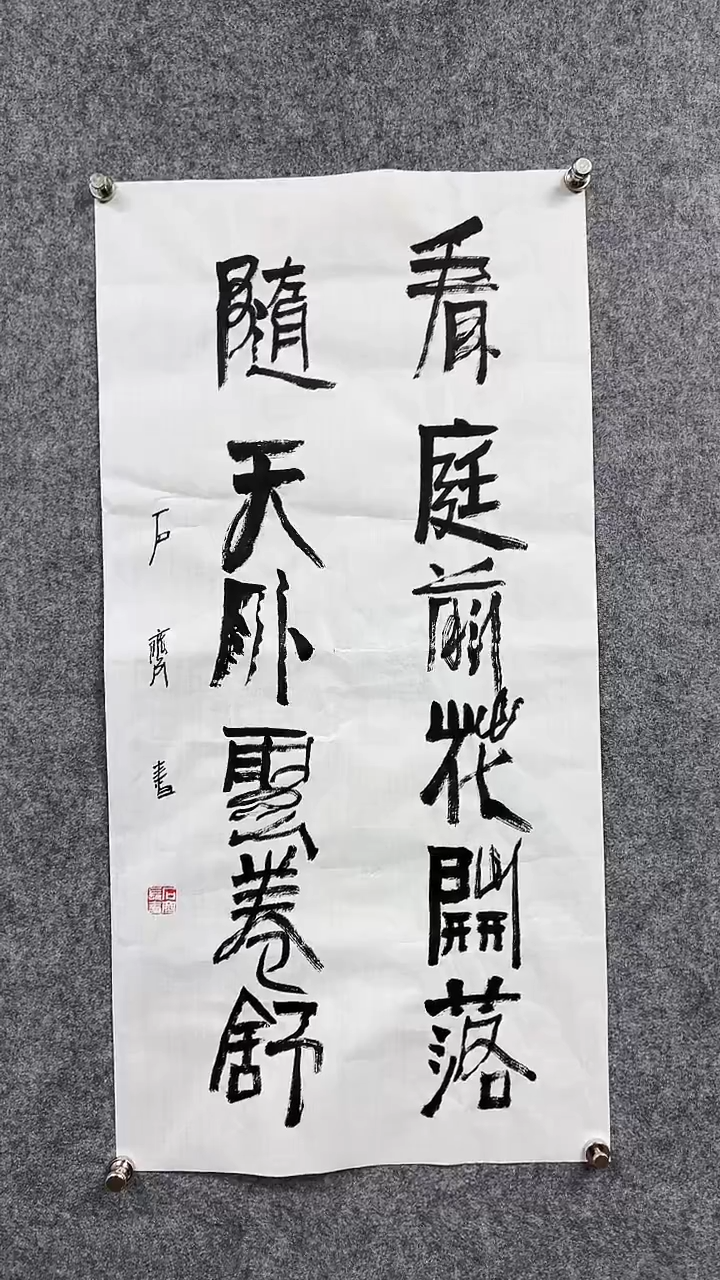 看庭前花開落
隨天外雲卷舒
石齋書